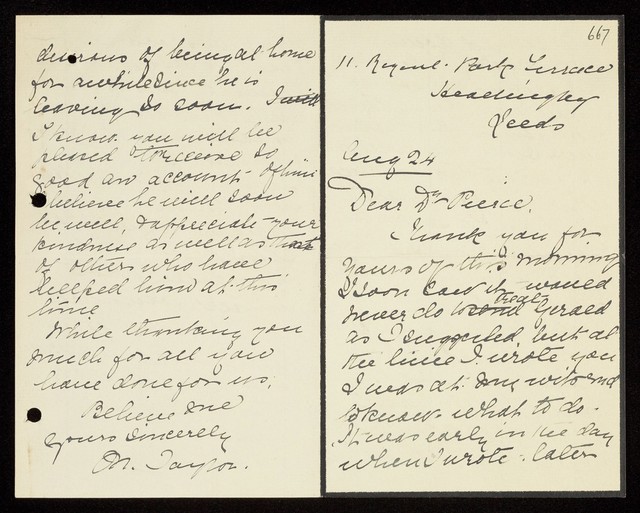 667
11. Regent Park Terrace
Headingley
Leeds
Aug 24
Dear Dr Pierce.
Thank you for
yours of this morning
I soon saw it would
never do to send treat Gerald
as I suggested, but at
the time I wrote you
I was at my wits end
to know what to do.
It was early in the day
when I wrote. later
desirous of being at home
for awhile since he is
leaving so soon. I will
I know you will be
pleased to receive so
good an account of him
I believe he will soon
be well, & appreciate your
kindness as well as that
of others who have
helped him at this
time
While thanking you
much for all you
have done for us,
Believe me
Yours sincerely
M. Taylor.